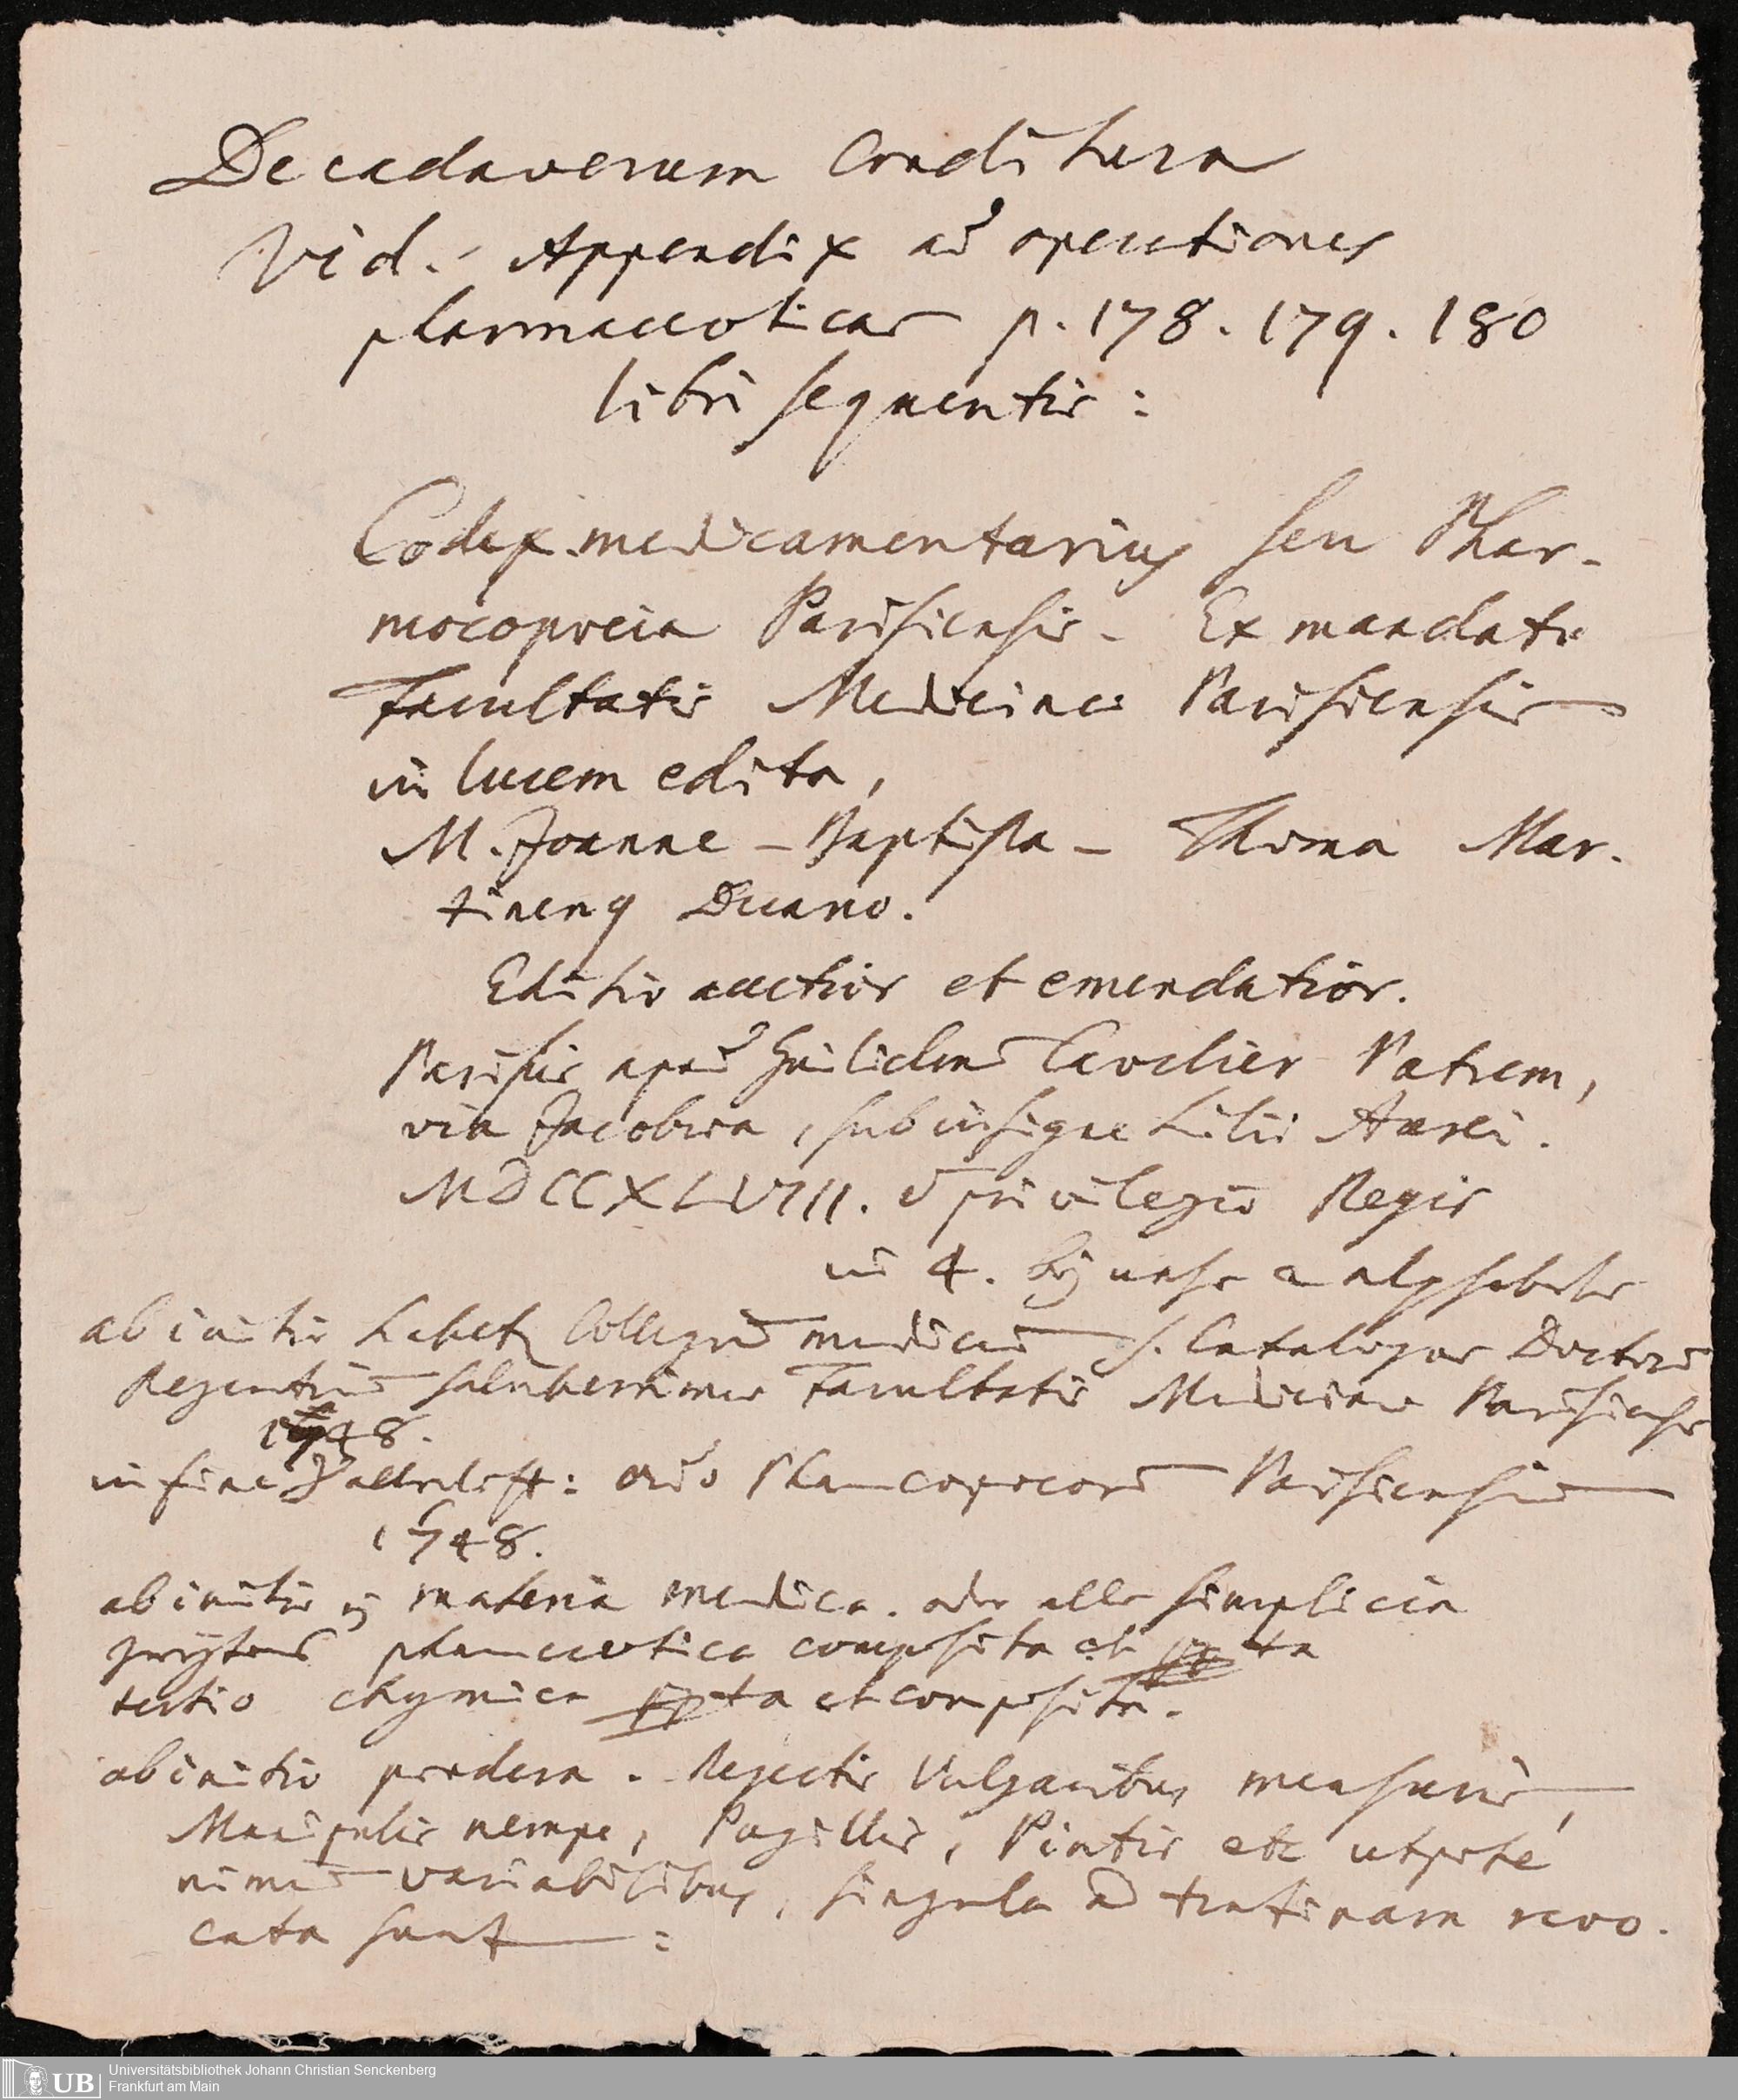 De cadaverum conditura
Vid. Appendix ad operationes
pharmaceoticas p. 178. 179. 180
libri sequentis:
Codex medicamentarius seu Phar-
macopoeia Parisiensis. Ex mandato
Facultatis Medicinae Parisiensis
in lucem edita,
M. Joanne-Baptista-Thoma Mar-
tinenq Decano.
Editio auctior et emendatior.
Parisiis apud Guilielm̄ Cavelier Patrem,
via Jacobaea, sub insigne Lilii Aurei.
MDCCXLVIII. c̄ privilegio Regis
in 4. alphabete
ab initio habet Collegiū medicū s. Catalogus Doctorū
Regentiū saluberrimae Facultatis Medicinae Parisiensis
1748.
in fine : ordo Pharmacopoeorū Parisiensiū
1748.
ab initio materia medica. oder alle simplicia
zweytens pharmaceotica composita et ta
tertio chymica ta et composita.
ab initio pondera. Rejectis Vulgaribus mensuris,
Manipulis nempe, Pugillis, Pintis etc utpote
nimiū variabilibus, singula ad trutinam revo-
cata sunt:
Universitätsbibliothek Johann Christian Senckenberg
Frankfurt am Main
UB